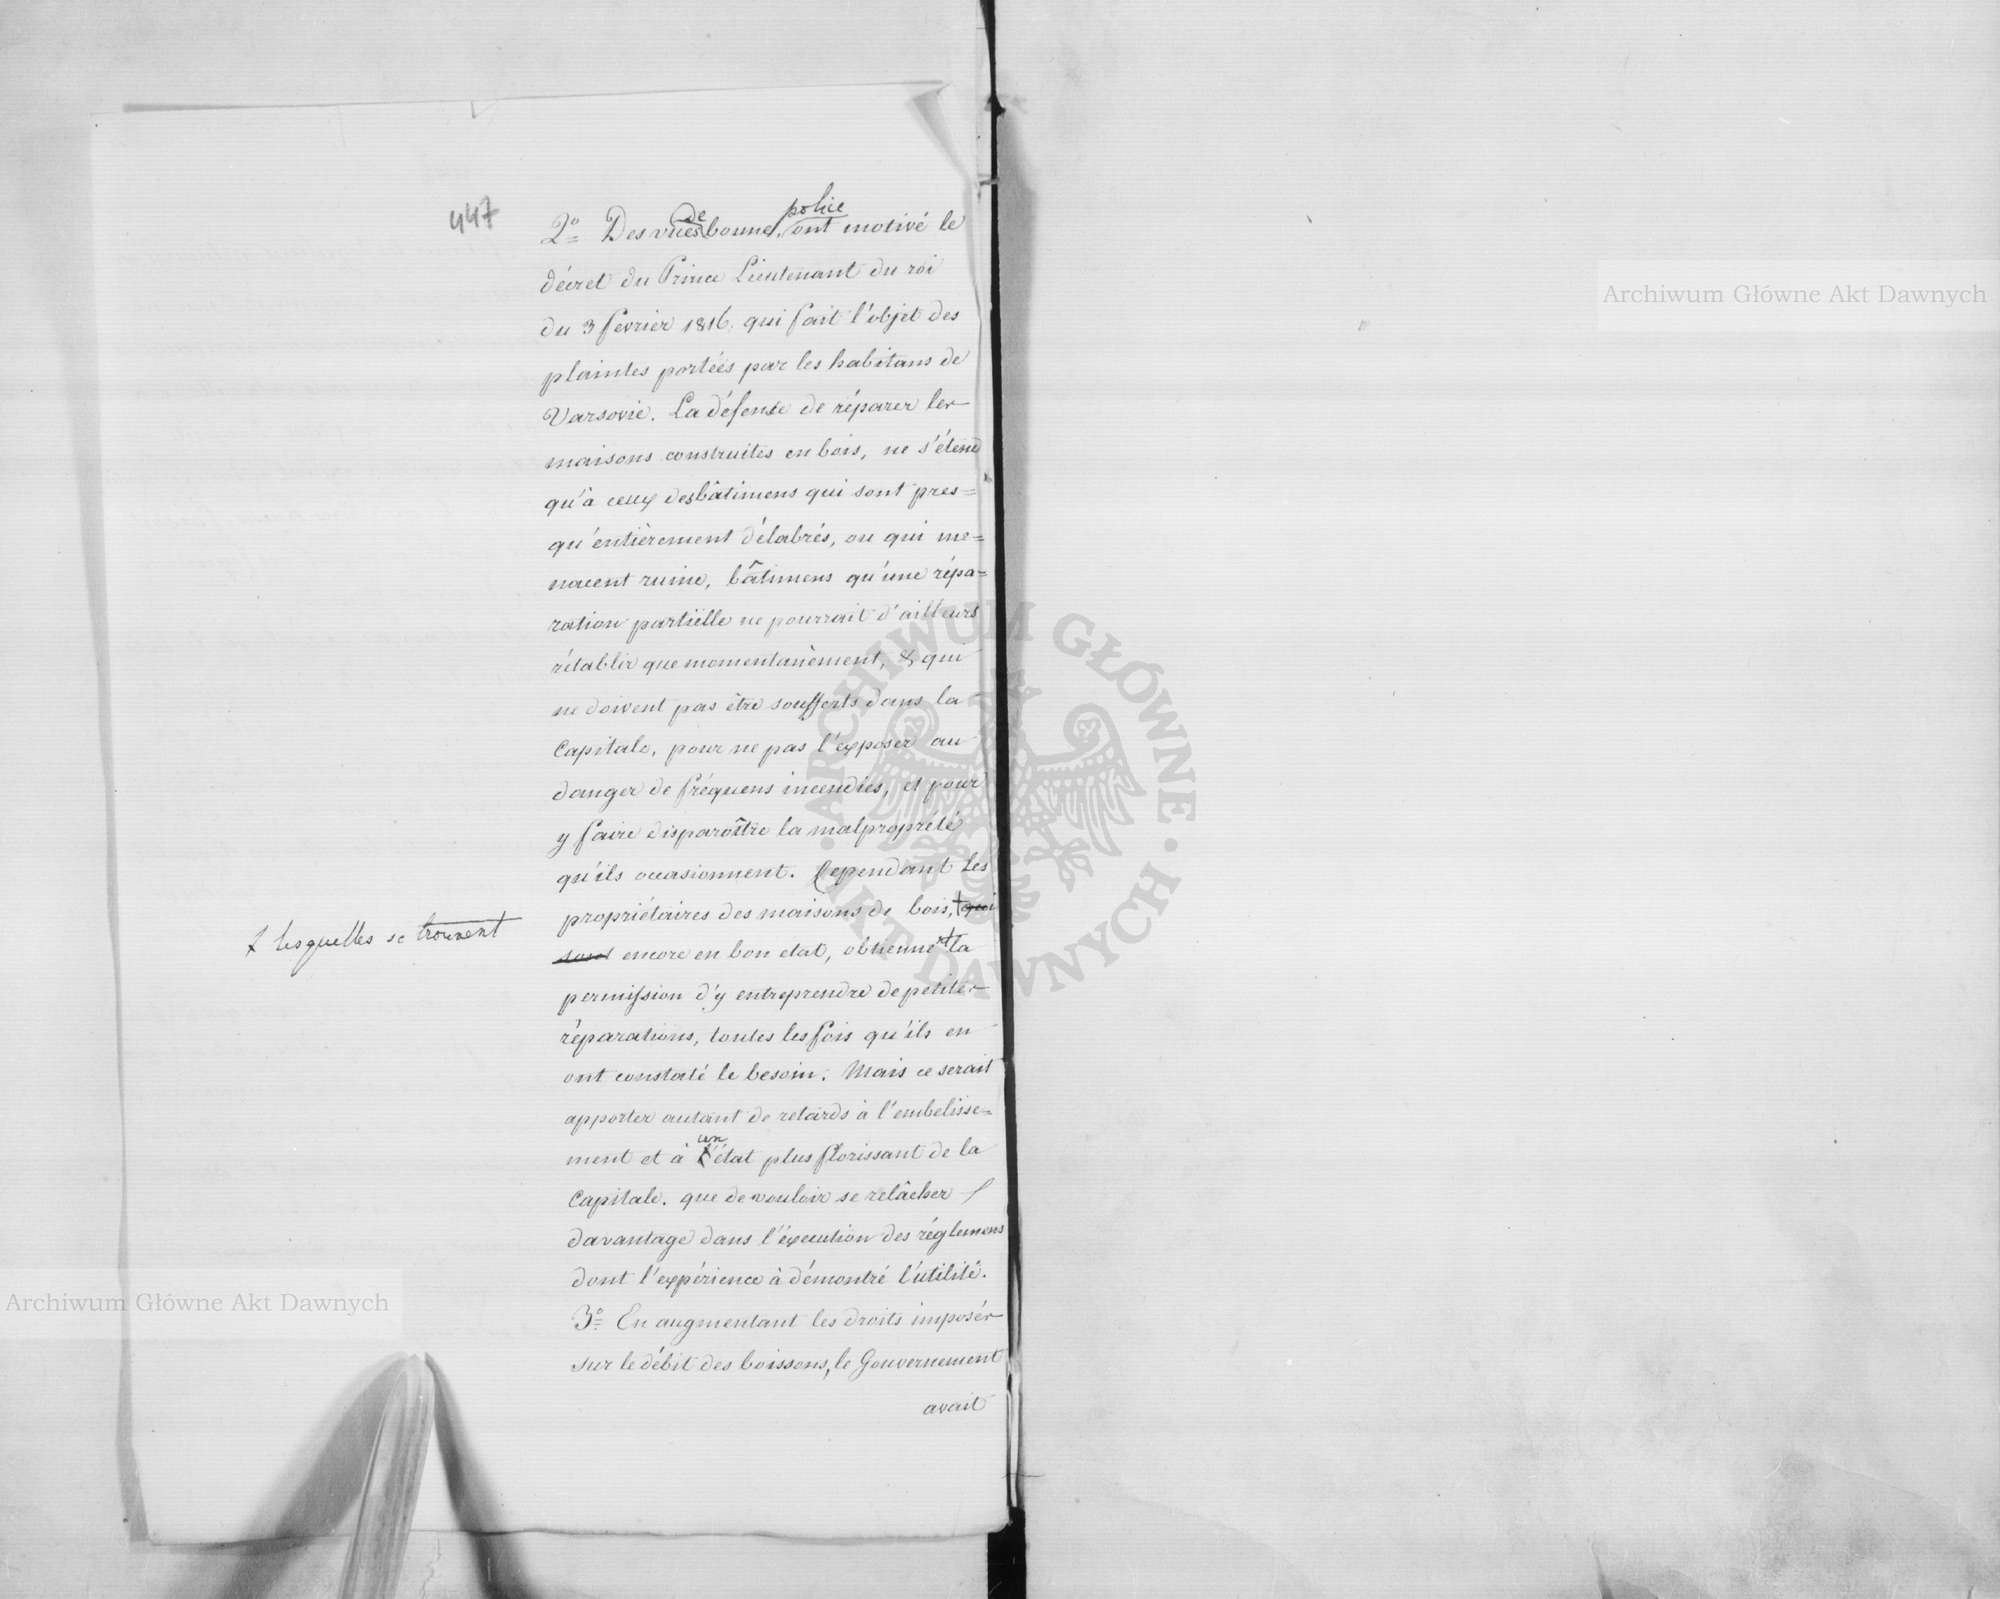 447
2º Des vües de bonne police ont motivé le
décret du Prince Lieutenant du roi
du 3 fevrier 1816. qui fait l'objet des
plaintes portées par les habitans de
Varsovie. La défense de réparer les
maisons construites en bois, ne s'étend
qu'à ceux des bâtimens qui sont pres=
qu'entièrement délabrés, ou qui me=
nacent ruine, bâtimens qu'une répa=
ration partielle ne pourrait d'ailleurs
rétablir que momentanèment, & qui
ne doivent pas être soufferts dans la
Capitale, pour ne pas l'exposer au
danger de fréquens incendies, et pour
y faire disparoître la malpropreté
qu'ils occasionnent. Cependant les
propriétaires des maisons de bois, + qui
+ lesquelles se trouvent
sont encore en bon etat, obtiennent la
permission d'y entreprendre de petites
réparations, toutes les fois qu'ils en
ont constaté le besoin. Mais ce serait
apporter autant de retards à l'embelisse=
ment et à un état plus florissant de la
Capitale. que de vouloir se relâcher
davantage dans l'éxecution des réglemens
dont l'expérience à démontré l'utilité.
3º En augmentant les droits imposés
sur le débit des boissons, le Gouvernement
avait
Archiwum Główne Akt Dawnych
Archiwum Główne Akt Dawnych
ARCHIWUM GŁÓWNE · AKT DAWNYCH ·